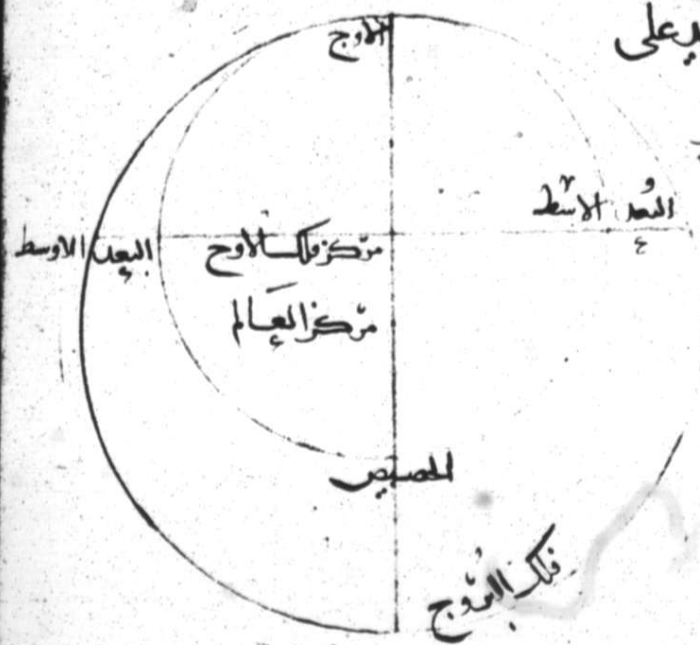 يد على
الاوج
البعد الاوسط
البعد الاوسط
مركز فلك الاوج
مركز العالم
الحضيض
فلك البروج